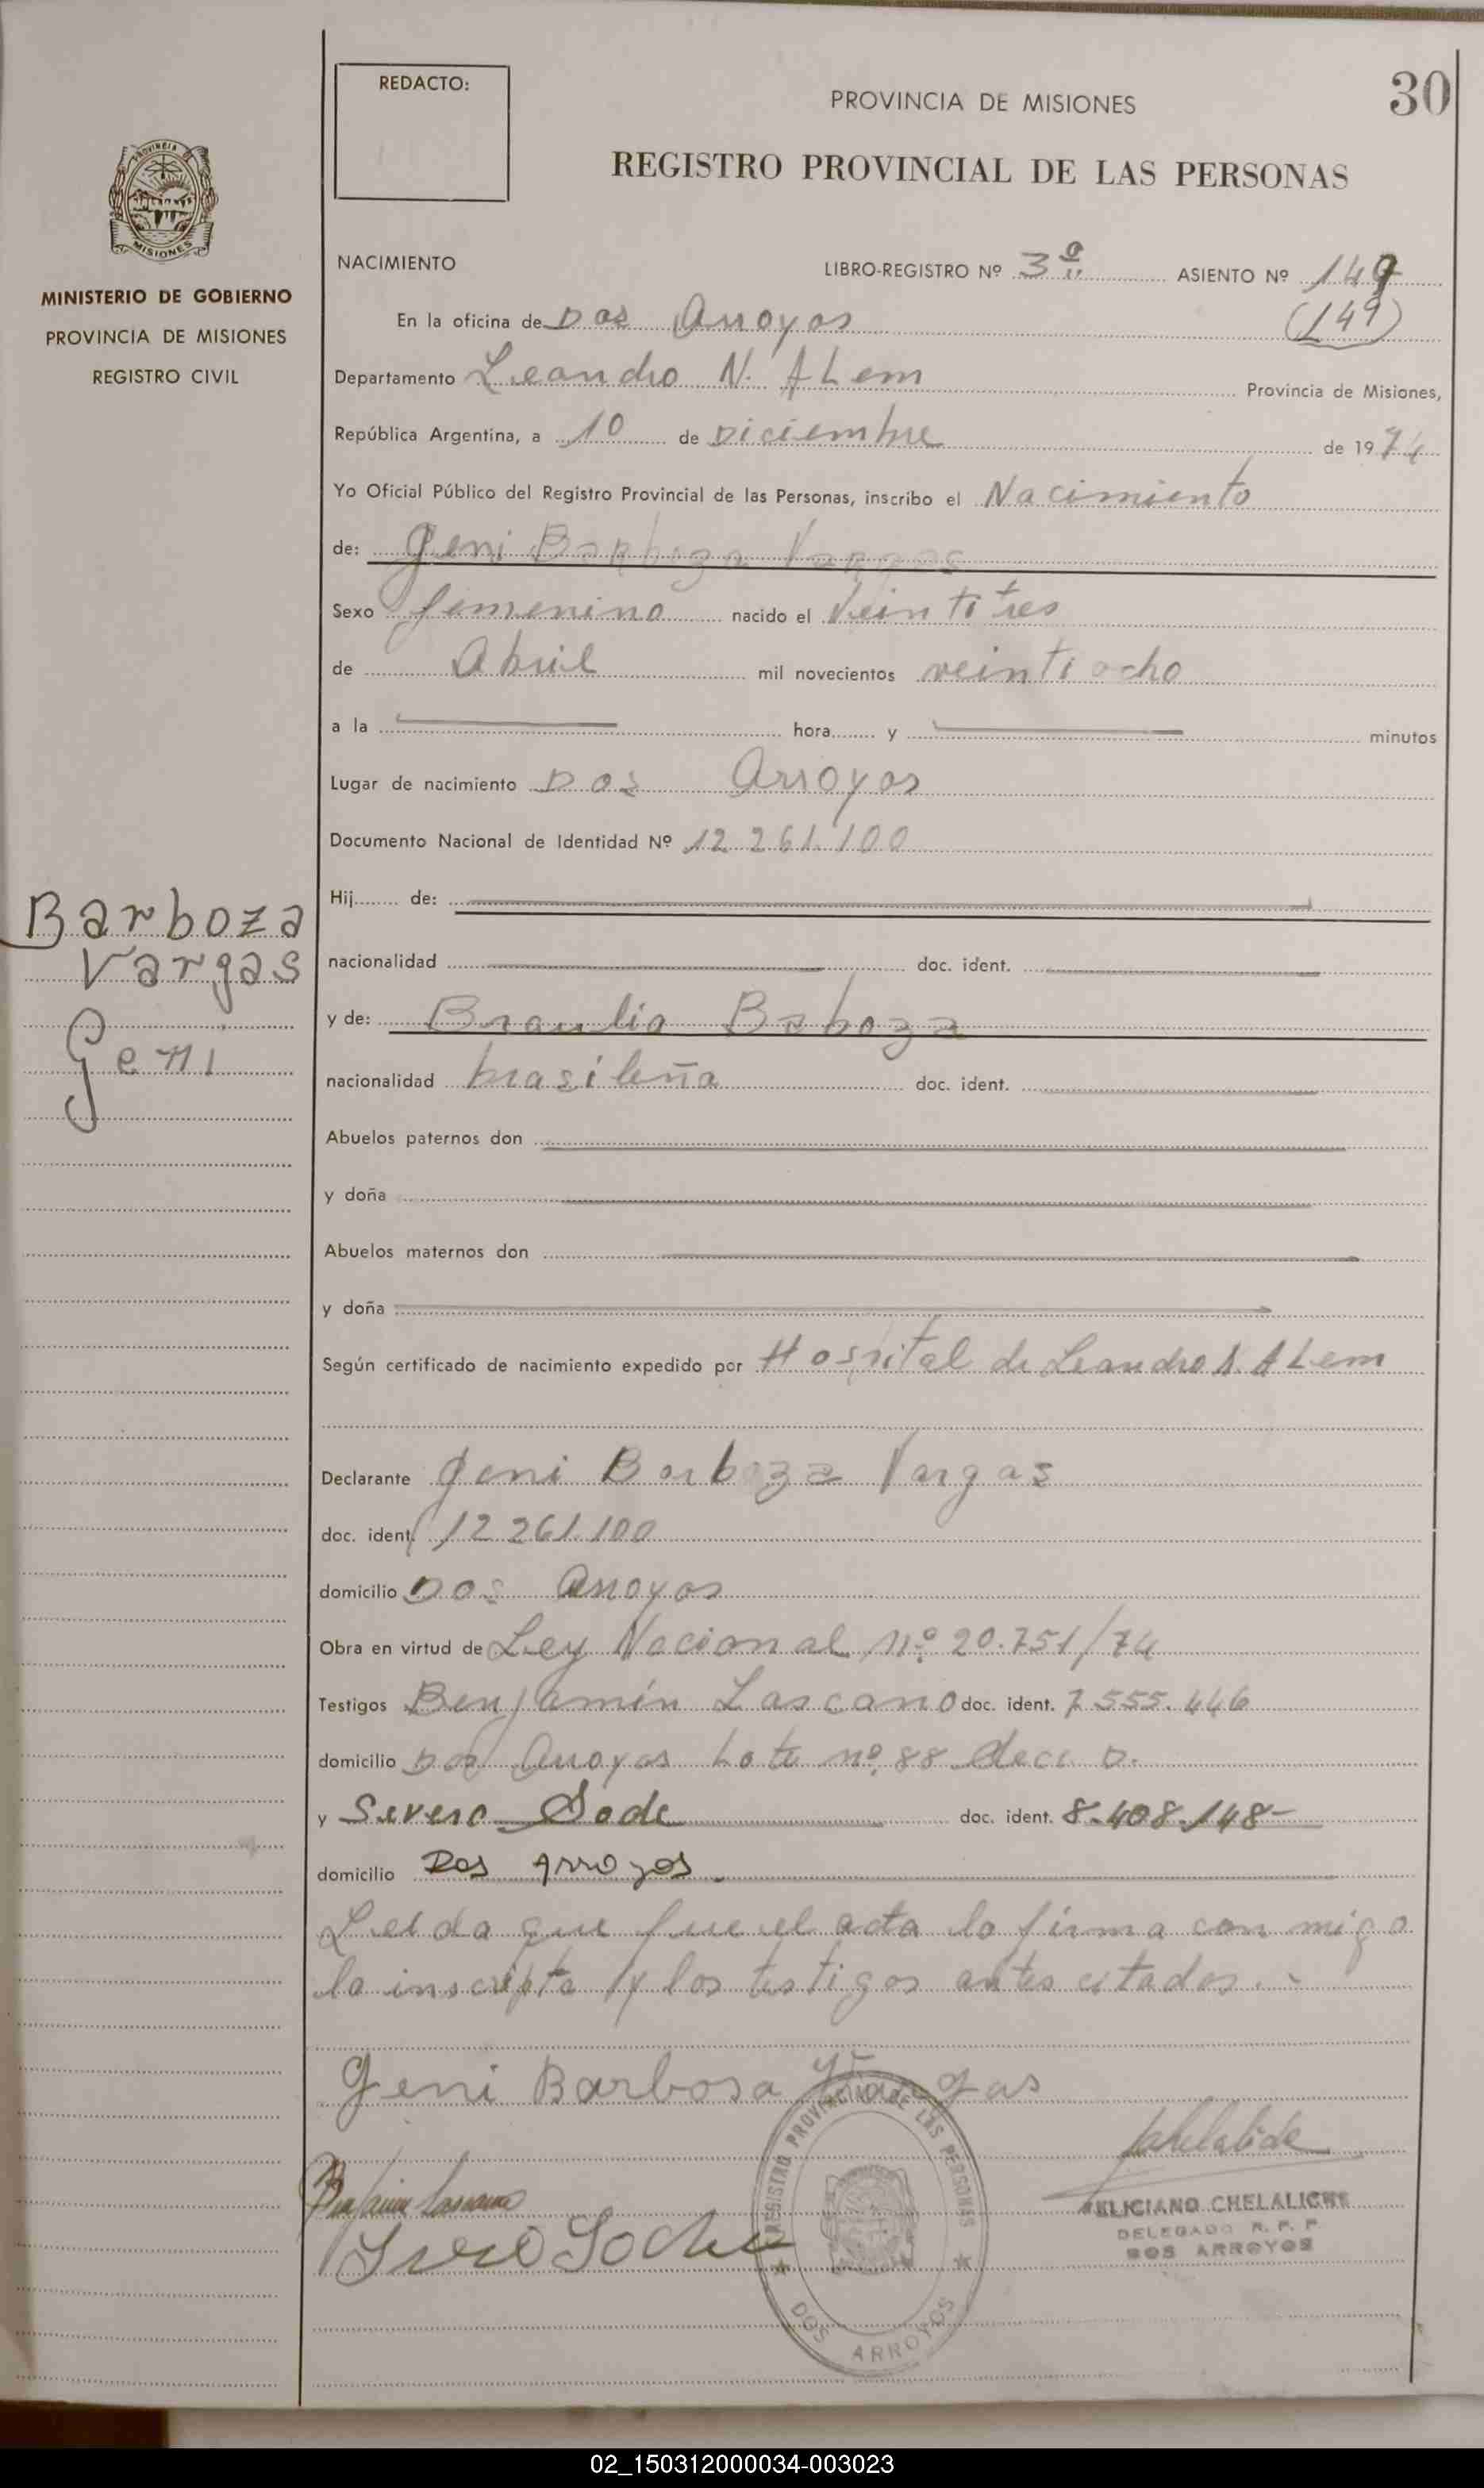 30
REDACTO:
PROVINCIA DE MISIONES
REGISTRO PROVINCIAL DE LAS PERSONAS
PROVINCIA DE
MISIONES
MINISTERIO DE GOBIERNO
PROVINCIA DE MISIONES
REGISTRO CIVIL
NACIMIENTO LIBRO-REGISTRO Nº 3º ASIENTO Nº 149
(149)
En la oficina de Dos Arroyos
Departamento Leandro N. ALem Provincia de Misiones,
República Argentina, a 10 de Diciembre de 1974
Yo Oficial Público del Registro Provincial de las Personas, inscribo el Nacimiento
de: Geni Barboza Vargas
Sexo femenino nacido el Veintitres
de Abril mil novecientos veintiocho
a la hora y minutos
Lugar de nacimiento Dos Arroyos
Documento Nacional de Identidad Nº 12.261.100
Barboza
Vargas
Geni
Hij de:
nacionalidad doc. ident.
y de: Braulia Baboza
nacionalidad brasileña doc. ident.
Abuelos paternos don
y doña
Abuelos maternos don
y doña
Según certificado de nacimiento expedido por Hospital de Leandro N. ALem
Declarante Geni Barboza Vargas
doc. ident. 12.261.100
domicilio Dos Arroyos
Obra en virtud de Ley Nacional nº 20.751/74
Testigos Benjamín Lascano doc. ident. 7.555.446
domicilio Dos Arroyos Lote nº 88
y Severo doc. ident. 8.408.148-
domicilio Dos Arroyos
Leida que fue el acta lo firma con migo
la inscripta y los testigos antes citados.-
Geni Barbosa Vargas
REGISTRO PROVINCIAL DE LAS PERSONAS
DOS ARROYOS
FELICIANO CHELALICHE
DELEGADO R. P. P.
DOS ARROYOS
02_150312000034-003023